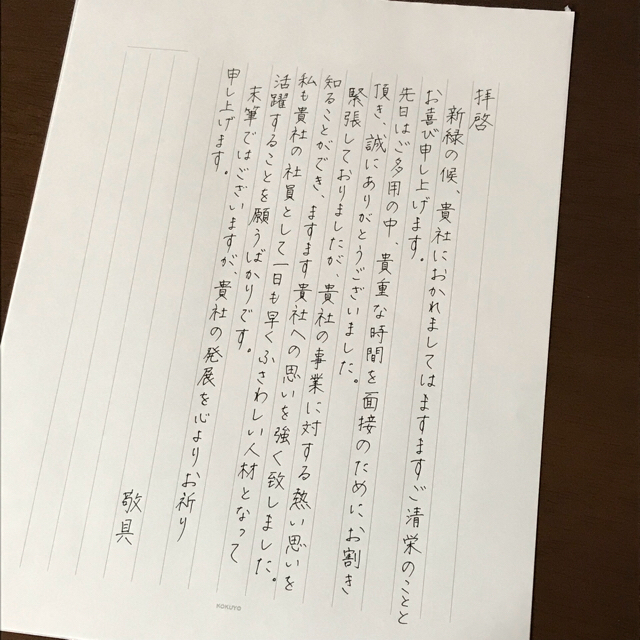 拝啓
新緑の候、貴社におかれましてはますますご清栄のことと
お喜び申し上げます。
先日はご多用の中、貴重な時間を面接のために、お割き
頂き、誠にありがとうございました。
緊張しておりましたが、貴社の事業に対する熱い思いを
知ることができ、ますます貴社への思いを強く致しました。
私も貴社の社員として一日も早くふさわしい人材となって
活躍することを願うばかりです。
末筆ではございますが、貴社の発展を心よりお祈り
申し上げます。
敬具
KOKUYO